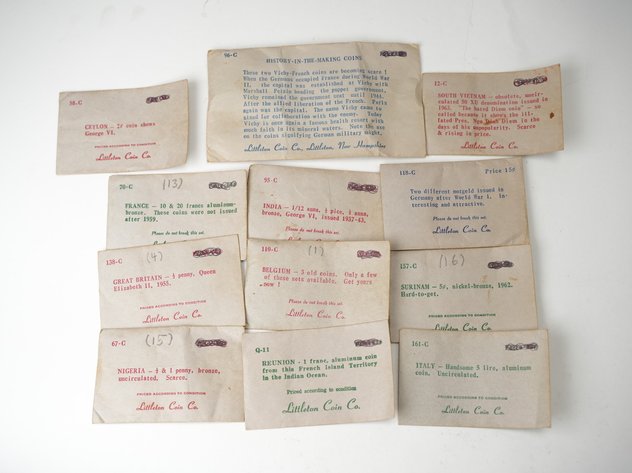 58-C
CEYLON - 2¢ coin shows
George VI.
PRICED ACCORDING TO CONDITION
Littleton Coin Co.
96-C
HISTORY-IN-THE-MAKING COINS
These two Vichy-French coins are becoming scarce!
When the Germans occupied France during World War
II, the capital was established at Vichy with
Marshall Petain heading the puppet government.
Vichy remained the government seat until 1944.
After the allied liberation of the French, Paris
again was the capital. The name Vichy came to
stand for collaboration with the enemy. Today
Vichy is once again a famous health resort with
much faith in its mineral waters. Note the axe
on the coins signifying German military might.
Littleton Coin Co., Littleton, New Hampshire
12-C
SOUTH VIETNAM - obsolete, uncir-
culated 50 XU denomination issued in
1963. "The hated Diem coin" - so
called because it shows the ill-
fated Pres. Ngo Dinh Diem in the
days of his unpopularity. Scarce
& rising in price.
Littleton Coin Co.
70-C
(13)
FRANCE - 10 & 20 francs aluminum-
bronze. These coins were not issued
after 1959.
Please do not break this set.
95-C
INDIA - 1/12 anna, ½ pice, 1 anna,
bronze, George VI, issued 1937-43.
Please do not break this set.
118-C
Price 15¢
Two different notgeld issued in
Germany after World War I. In-
teresting and attractive.
Littleton Coin Co.
138-C
(4)
GREAT BRITAIN - ½ penny, Queen
Elizabeth II, 1955.
PRICED ACCORDING TO CONDITION
Littleton Coin Co.
119-C
(1)
BELGIUM - 3 old coins. Only a few
of these sets available. Get yours
now!
Please do not break this set.
Littleton Coin Co.
157-C
(16)
SURINAM - 5¢, nickel-bronze, 1962.
Hard-to-get.
PRICED ACCORDING TO CONDITION
Littleton Coin Co.
67-C
(15)
NIGERIA - ½ & 1 penny, bronze,
uncirculated. Scarce.
PRICED ACCORDING TO CONDITION
Littleton Coin Co.
Q-11
REUNION - 1 franc, aluminum coin
from this French Island Territory
in the Indian Ocean.
Priced according to condition
Littleton Coin Co.
161-C
ITALY - Handsome 5 lire, aluminum
coin. Uncirculated.
PRICED ACCORDING TO CONDITION
Littleton Coin Co.